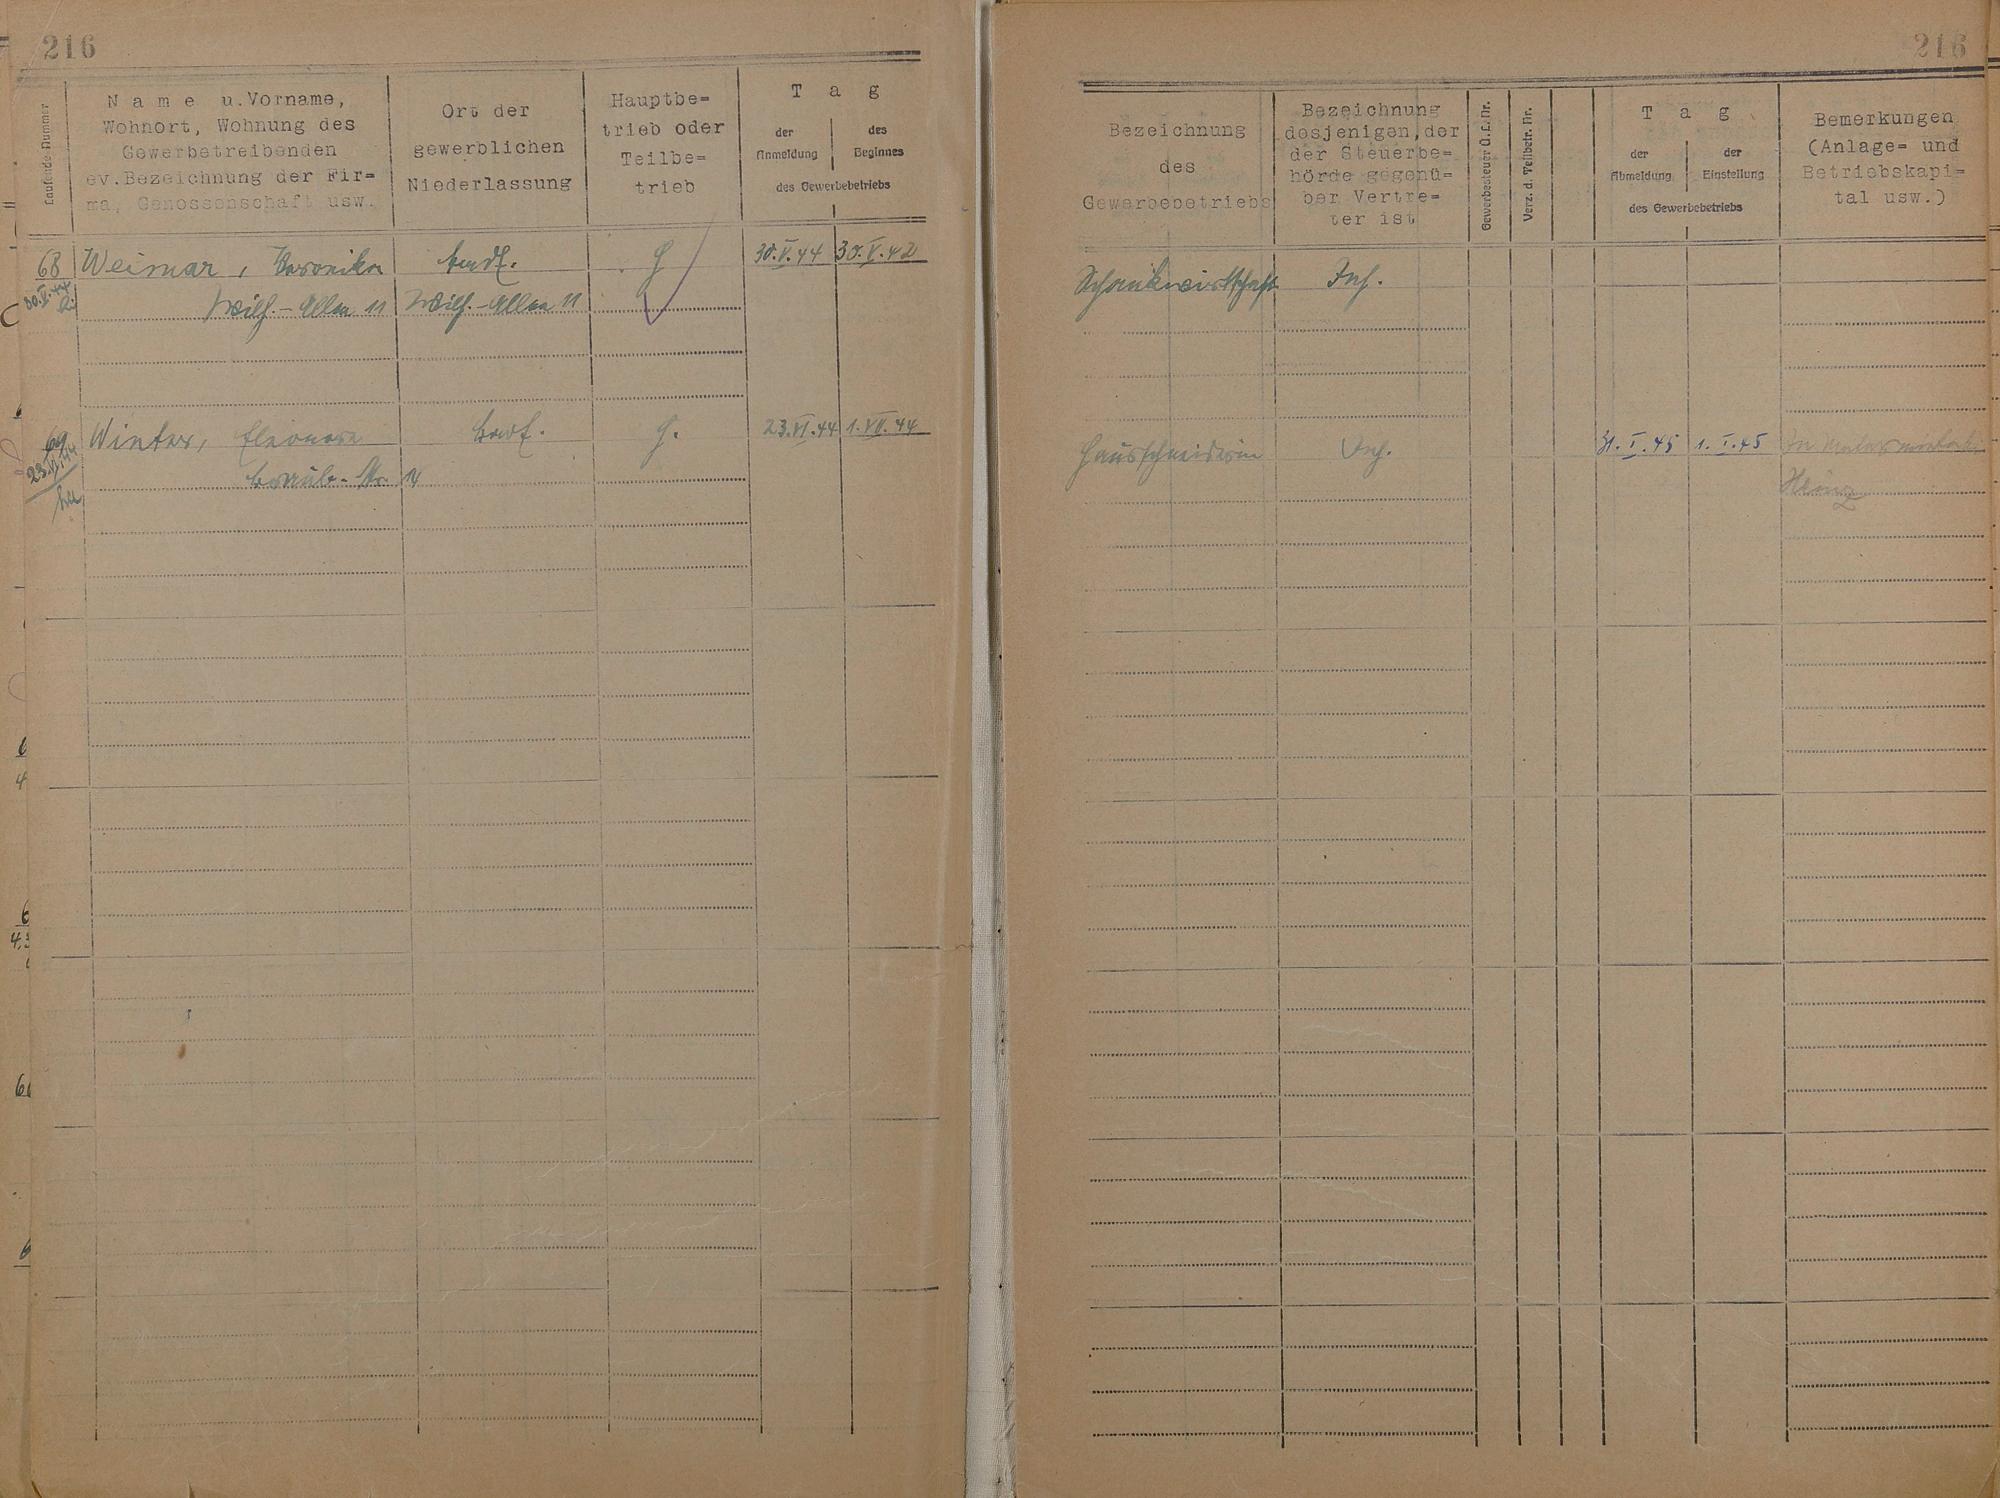 216
Laufende Nummer
Name u.Vorname,
Wohnort, Wohnung des
Gewerbetreibenden
ev.Bezeichnung der Fir=
ma, Genossenschaft usw.
Ort der
gewerblichen
Niederlassung
Hauptbe=
trieb oder
Teilbe=
trieb
Tag
der
Anmeldung
des
Beginnes
des Gewerbebetriebs
68 Weimar, Veronika
30.V.44 30.V.42
30.V.44
Wilh.-Allee 11 Wilh.-Allee 11
69 Winter, Eleonore
23.VI.44 1.VII.44
23.VI.44
Str. 14
216
Bezeichnung
des
Gewerbebetriebs
Bezeichnung
desjenigen, der
der Steuerbe=
hörde gegenü=
ber Vertre=
ter ist
Gewerbesteuer Ü.L.Nr.
Verz. d. Teilbetr. Nr.
Tag
der
Abmeldung
der
Einstellung
des Gewerbebetriebs
Bemerkungen
(Anlage= und
Betriebskapi=
tal usw.)
Schankwirtschaft Inh.
Hausschneiderin Inh. 31.I.45 1.I.45